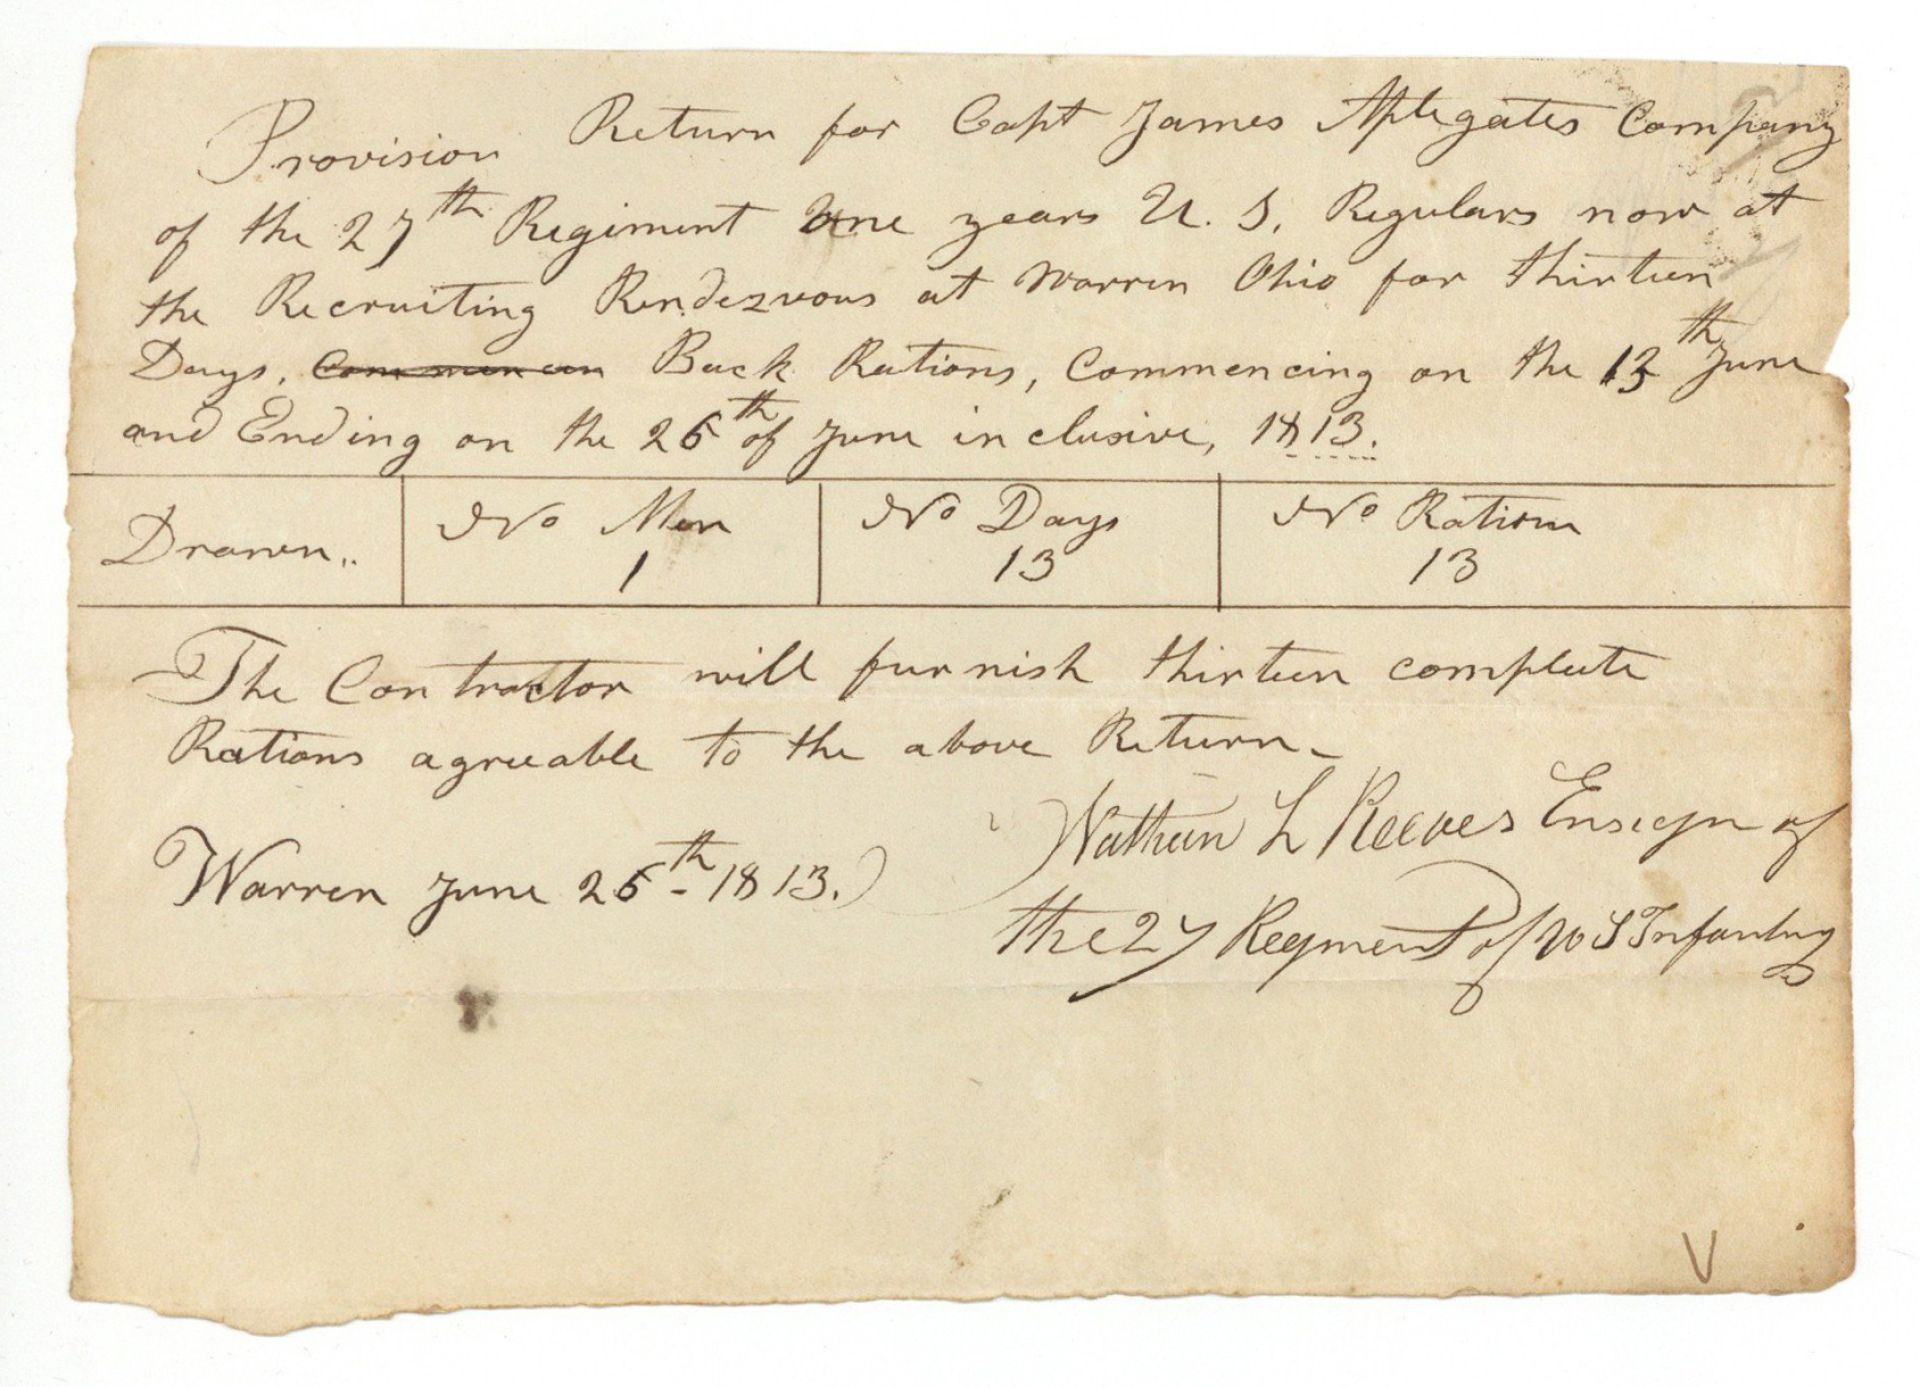 Provision Return for Capt James Aplegates Company
of the 27th Regiment One years U. S. Regulars now at
the Recruiting Rendezvous at Warren Ohio for thirteen
Days, Commencen Back Rations, Commencing on the 13th June
and Ending on the 25th of June inclusive, 1813.
Drawn,, No Men No Days No Rations
1 13 13
The Contractor will furnish thirteen compleete
Rations agreeable to the above Return_
Nathan L Reeves Ensign of
Warren June 25th - 1813.)
the 27 Regment of U S Infantry
V